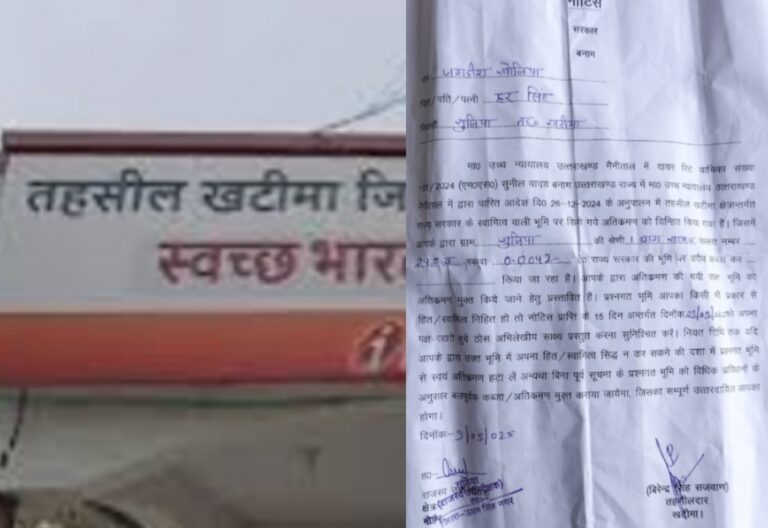 तहसील खटीमा जि
स्वच्छ भारत
नोटिस
सरकार
बनाम
जगदीश
/पति/पत्नी हर सिंह
तह० खटीमा
मा0 उच्च न्यायालय उत्तराखण्ड नैनीताल में दायर रिट याचिका संख्या
/2024 (एम0एस0) सुनील यादव बनाम उत्तराखण्ड राज्य में मा0 उच्च न्यायालय उत्तराखण्ड
नैनीताल में द्वारा पारित आदेश दि0 26-12-2024 के अनुपालन में तहसील खटीमा क्षेत्रान्तर्गत
राज्य सरकार के स्वामित्व वाली भूमि पर किये गये अतिक्रमण को चिन्हित किया गया है। जिसमें
आपके द्वारा ग्राम की श्रेणी खसरा नम्बर
रकवा 0.0042 है0 राज्य सरकार की भूमि पर अवैध कब्जा कर
किया जा रहा है। आपके द्वारा अतिक्रमण की गयी उक्त भूमि को
अतिक्रमण मुक्त किये जाने हेतु प्रस्तावित है। प्रश्नगत भूमि आपका किसी भी प्रकार से
हित/स्वामित्व निहित हो तो नोटिस प्राप्ति के 15 दिन अन्तर्गत दिनॉक को अपना
पक्ष रखते हुये ठोस अभिलेखीय साक्ष्य प्रस्तुत करना सुनिश्चित करें। नियत तिथि तक यदि
आपके द्वारा उक्त भूमि में अपना हित/स्वामित्व सिद्ध न कर सकने की दशा में प्रश्नगत भूमि
से स्वयं अतिक्रमण हटा लें अन्यथा बिना पूर्व सूचना के प्रश्नगत भूमि को विधिक प्राविधानों के
अनुसार बलपूर्वक कब्जा/अतिक्रमण मुक्त कराया जायेगा, जिसका सम्पूर्ण उत्तरदायित्व आपका
होगा।
दिनॉक:-9/05/025
ह0-
राजस्व
क्षेत्र
जिला-ऊधम सिंह नगर
(बिरेन्द्र सिंह सजवाण)
तहसीलदार
खटीमा।